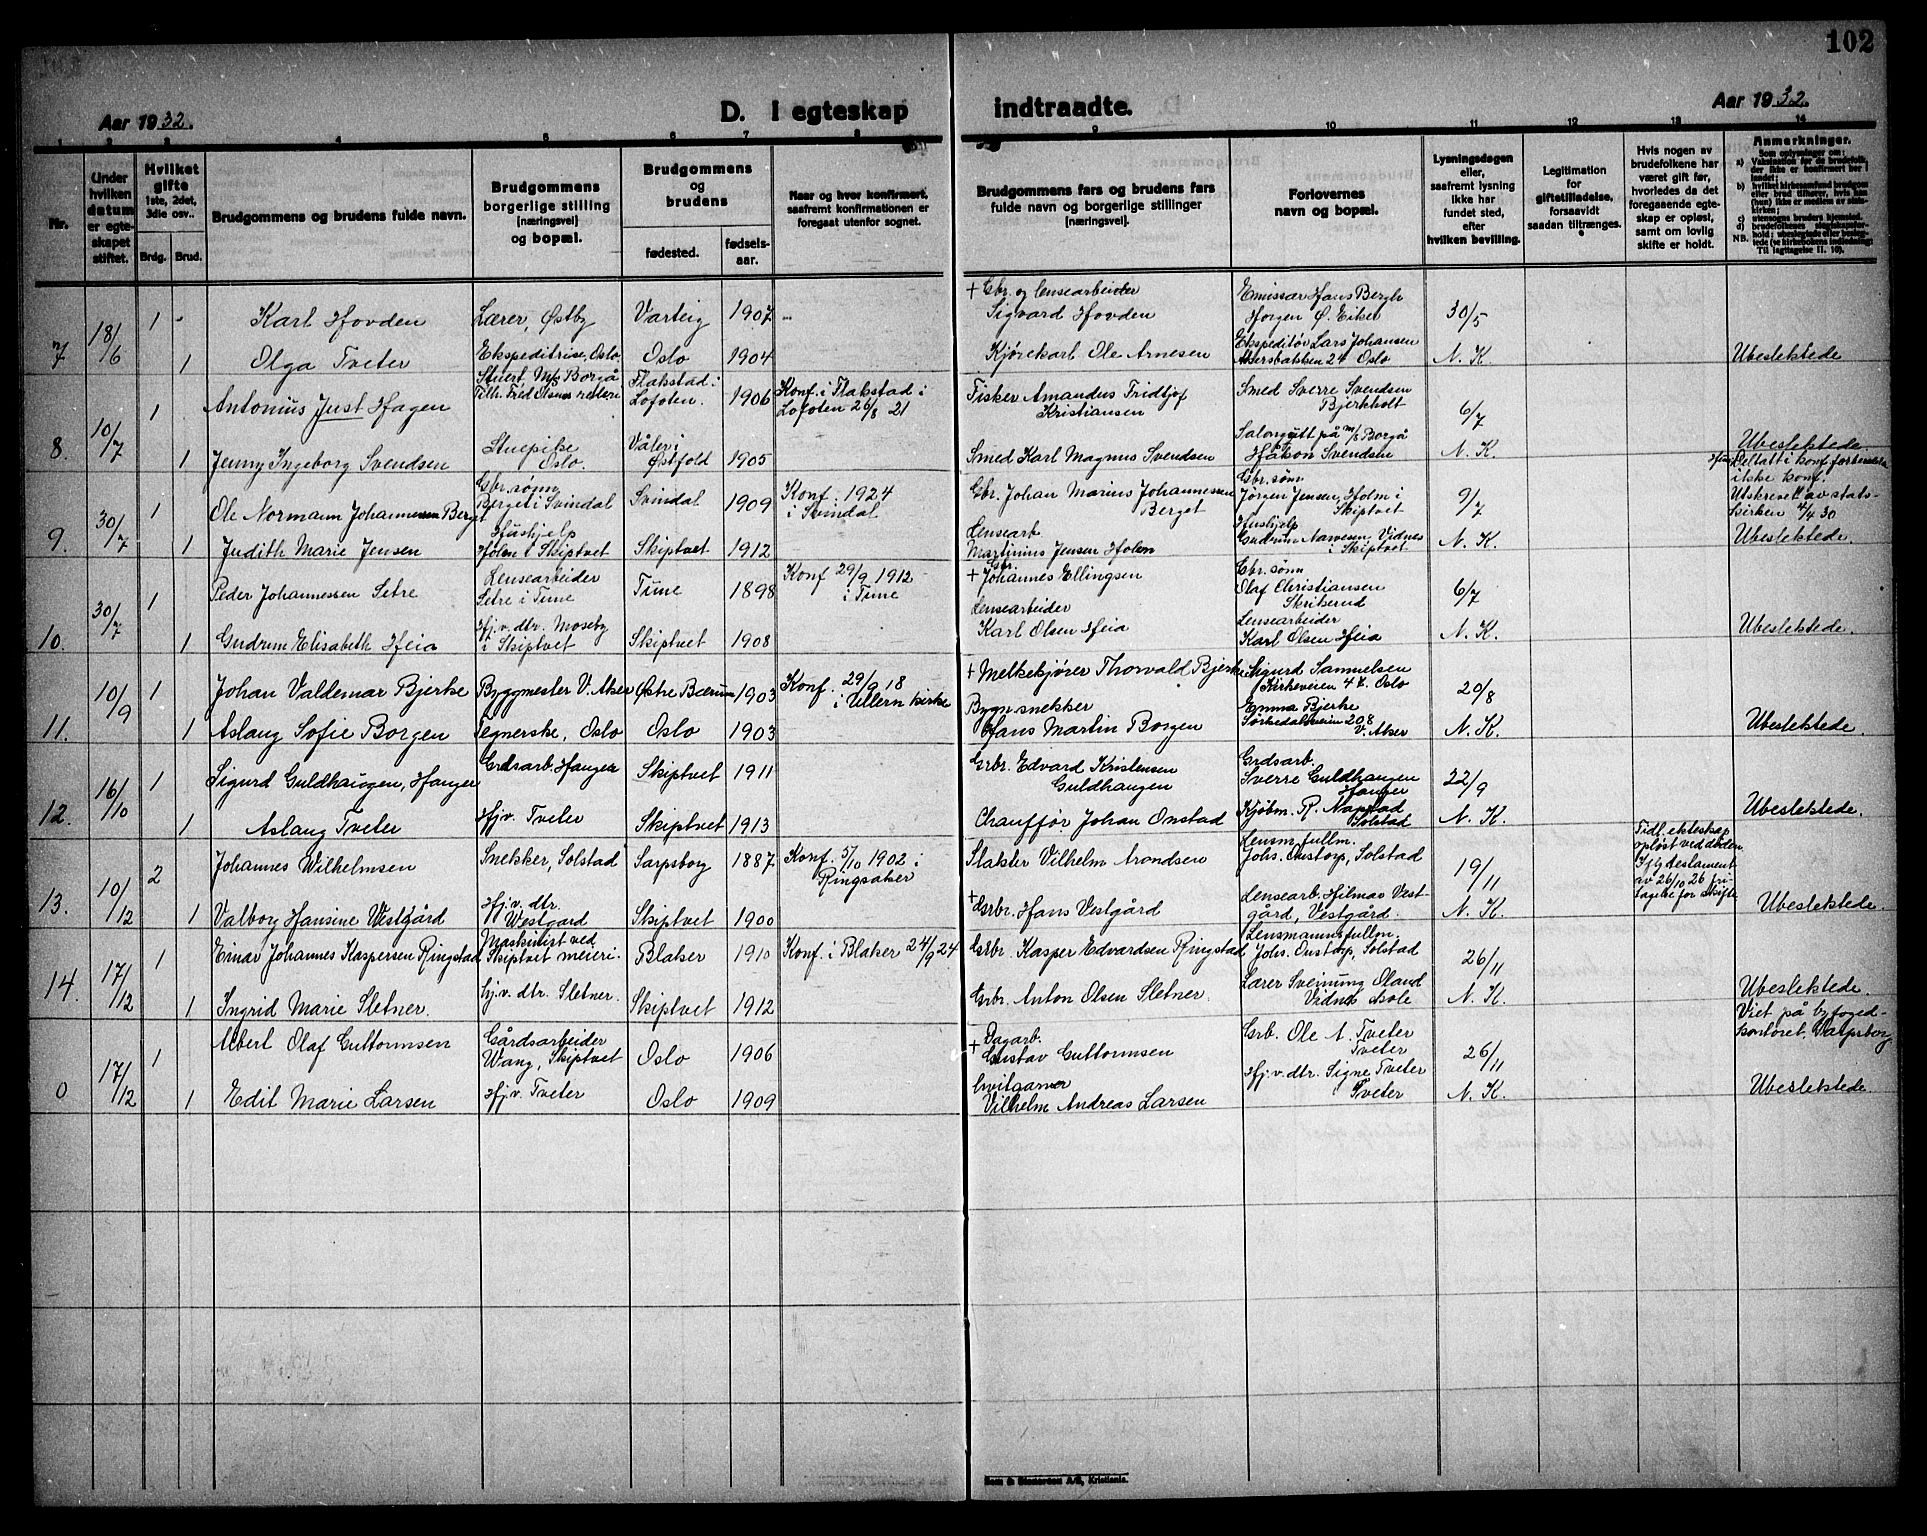 102
Aar 1932.
D. I egteskap indtraadte.
Aar 1932.
1 2 3 4 5 6 7 8 9 10 11 12 13 14
Nr.
Under hvilken datum er egteskapet stiftet.
Hvilket gifte 1ste, 2det, 3die osv..
Brdg. Brud.
Brudgommens og brudens fulde navn.
Brudgommens borgerlige stilling [næringsvei] og bopæl.
Brudgommens og brudens
fødested. fødselsaar.
Naar og hvor konfirmert, saafremt konfirmationen er foregaat utenfor sognet.
Brudgommens fars og brudens fars fulde navn og borgerlige stillinger [næringsvei].
Forlovernes navn og bopæl.
Lysningsdagen eller, saafremt lysning ikke har fundet sted, efter hvilken bevilling.
Legitimation for giftetilladelse, forsaavidt saadan tiltrænges.
Hvis nogen av brudefolkene har været gift før, hvorledes da det foregaaende egteskap er opløst, samt om lovlig skifte er holdt.
Anmerkninger.
Som oplysninger om:
7 18/6 1 Karl Hovden Lærer, Østby Varteig 1907 + Gbr. og lensearbeider Sigvard Hovden Emissær Hans Bergh Horgen Ø. Eiker 30/5
1 Olga Tveter Ekspeditrise, Oslo Oslo 1904 Kjørekarl Ole Arnesen Ekspeditør Lars Johansen Akersbakken 24 Oslo N. K. Ubeslektede
8. 10/7 1 Antonius Just Hagen Stuert, M/S Borgå Tilh. Fred Olsens rederi Flakstad i Lofoten. 1906 Konf. i Flakstad i Lofoten 26/8 21 Fisker Amandus Fridtjof Kristiansen Smed Sverre Svendsen Bjerkholt 6/7
1 Jenny Ingeborg Svendsen Stuepike Oslo. Våler i Østfold 1905 Smed Karl Magnus Svendsen Salongutt på M/S Borgå Håkon Svendsen N. K. Ubeslektede
9. 30/7 1 Ole Normann Johannessen Berget Gbr. sønn Berget i Svindal Svindal 1909 Konf. 1924 i Svindal Gbr. Johan Marius Johannessen Berget Gbr. sønn Jørgen Jensen, Holm i Skiptvet 9/7 Deltatt i konf. forberedelse ikke konf. Utskrevet av statskirken 4/4 30
1 Judith Marie Jensen Hushjelp Holen i Skiptvet Skiptvet 1912 Lensearb. Martinius Jensen Holen Hushjelp Gudrun Navesen, Vidnes i Skiptvet N. K. Ubeslektede.
10. 30/7 1 Peder Johannessen Setre Lensearbeider Setre i Tune Tune 1898 Konf 29/9 1912 i Tune + Gbr. Johannes Ellingsen Gbr. sønn Olaf Christiansen Skriserud 6/7
1 Gudrun Elisabeth Heia Hj. v. dtr. Moseby i Skiptvet Skiptvet 1908 Lensearbeider Karl Olsen Heia Lensearbeider Karl Olsen Heia N. K. Ubeslektede.
11. 10/9 1 Johan Valdemar Bjerke Byggmester V. Aker Østre Bærum 1903 Konf. 29/9 18 i Ullern kirke + Melkekjører Thorvald Bjerke Sigurd Samuelsen Kirkeveien 47. Oslo 20/8
1 Aslaug Sofie Borgen Tegnerske, Oslo Oslo 1903 Bygn. snekker Hans Martin Borgen Emma Bjerke Sørkedalsveien 208 V. Aker N. K. Ubeslektede.
12. 16/10 1 Sigurd Guldhaugen, Hauger Grdsarb. Hauger Skiptvet 1911 Grbr. Edvard Kristensen Guldhaugen Grdsarb. Sverre Guldhaugen Hauger 22/9
1 Aslaug Tveter Hj. v. Tveter Skiptvet 1913 Chauffør Johan Onstad Kjøbm. R. Navestad Solstad N. K. Ubeslektede.
13. 10/12 2 Johannes Wilhelmsen Snekker, Solstad Sarpsborg 1887 Konf. 5/10 1902 i Ringsaker Slakter Vilhelm Arondsen Lensm. fullm. Johs. Onstorp, Solstad 19/11 Tidl. ekteskap opløst ved døden. Iflg testament av 26/10 26 fritagelse for skifte
1 Valborg Hansine Vestgård Hj. v. dtr. Westgard Skiptvet 1900 + Grbr. Hans Vestgård Lensearb. Hilmar Vestgård, Vestgård. N. K. Ubeslektede.
14. 17/12 1 Einar Johannes Kaspersen Ringstad Maskinist ved Skiptvet meieri. Blaker 1910 Konf. i Blaker 24/9 24 Grbr. Kasper Edvardsen Ringstad Lensmannsfullm. Johs. Onstorp, Solstad 26/11
1 Ingrid Marie Sletner. Hj. v. dtr. Sletner. Skiptvet 1912 Grbr. Anton Olsen Sletner. Lærer Sveinung Oland Vidnes skole N. K. Ubeslektede.
0 17/12 1 Albert Olaf Guttormsen Gårdsarbeider Wang, Skiptvet Oslo 1906 + Dagarb. Gustav Guttormsen Grb. Ole A. Tveter Tveter 26/11 Viet på byfogedkontoret, Sarpsborg
1 Edit Marie Larsen Hj. v. Tveter Oslo 1909 Vilhelm Andreas Larsen Hj. v. dtr. Signe Tveter Tveter N. K. Ubeslektede